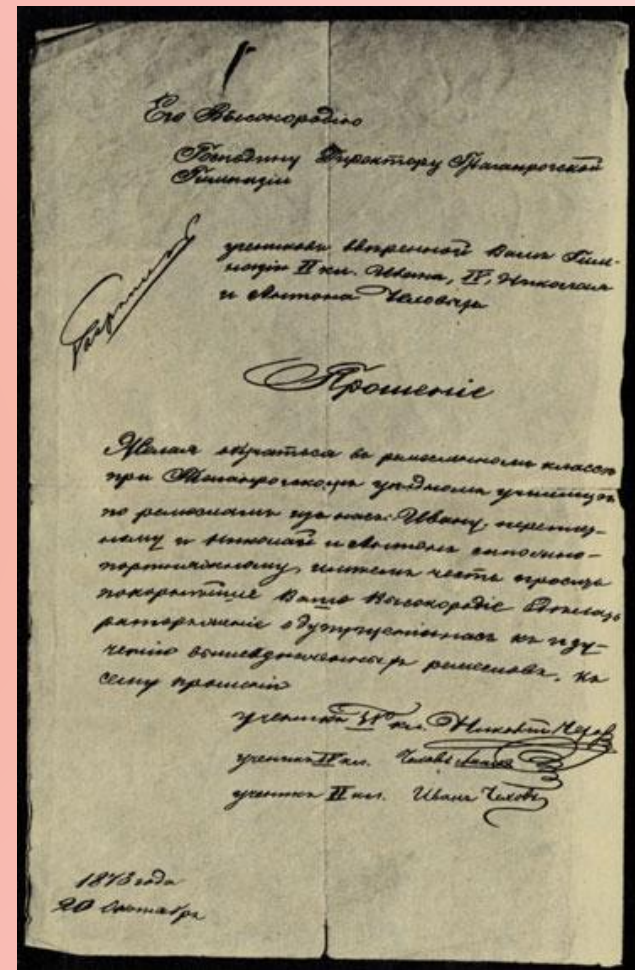 Его Высокородію
Господину Директору Таганрогской
Гимназіи
учениковъ ввѣренной Вамъ Гим-
назіи II кл. Ивана, IV, Николая
и Антона Чеховыхъ
Прошеніе
Желая обучаться въ ремесленномъ классѣ
при Таганрогскомъ уѣздномъ училищѣ
по ремесламъ изъ насъ: Ивану, переплет-
ному и Николай и Антонъ сапожно-
портняжному, имѣемъ честь просить
покорнѣйше Ваше Высокородіе сдѣлать
о допущеніи насъ къ изу-
ченію вышеозначенныхъ ремеселъ, къ
сему прошенію
ученикъ кл. Николай Чеховъ
ученикъ IV кл. Чеховъ
ученикъ II кл. Иванъ Чеховъ
1873 года
20 Октября